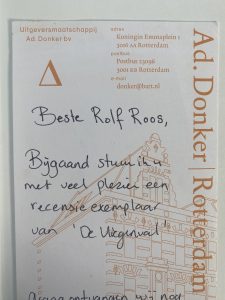 Uitgeversmaatschappij
Ad. Donker bv
adres
Koningin Emmaplein 1
3016 AA Rotterdam
postbus
Postbus 23096
3001 KB Rotterdam
e-mail
donker@bart.nl
Ad. Donker | Rotterdam
Beste Rolf Roos,
Bijgaand stuur ik u
met veel plezier een
recensie exemplaar
van 'De Vliegenval'
Graag ontvangen wij nog